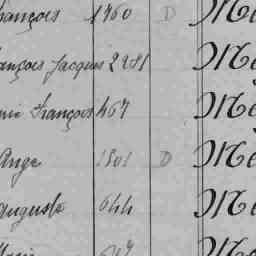 ançois 1960 D Me
ançois Jacques 2281 Me
François 467 Me
Ange 1801 D Me
Auguste 644 Me